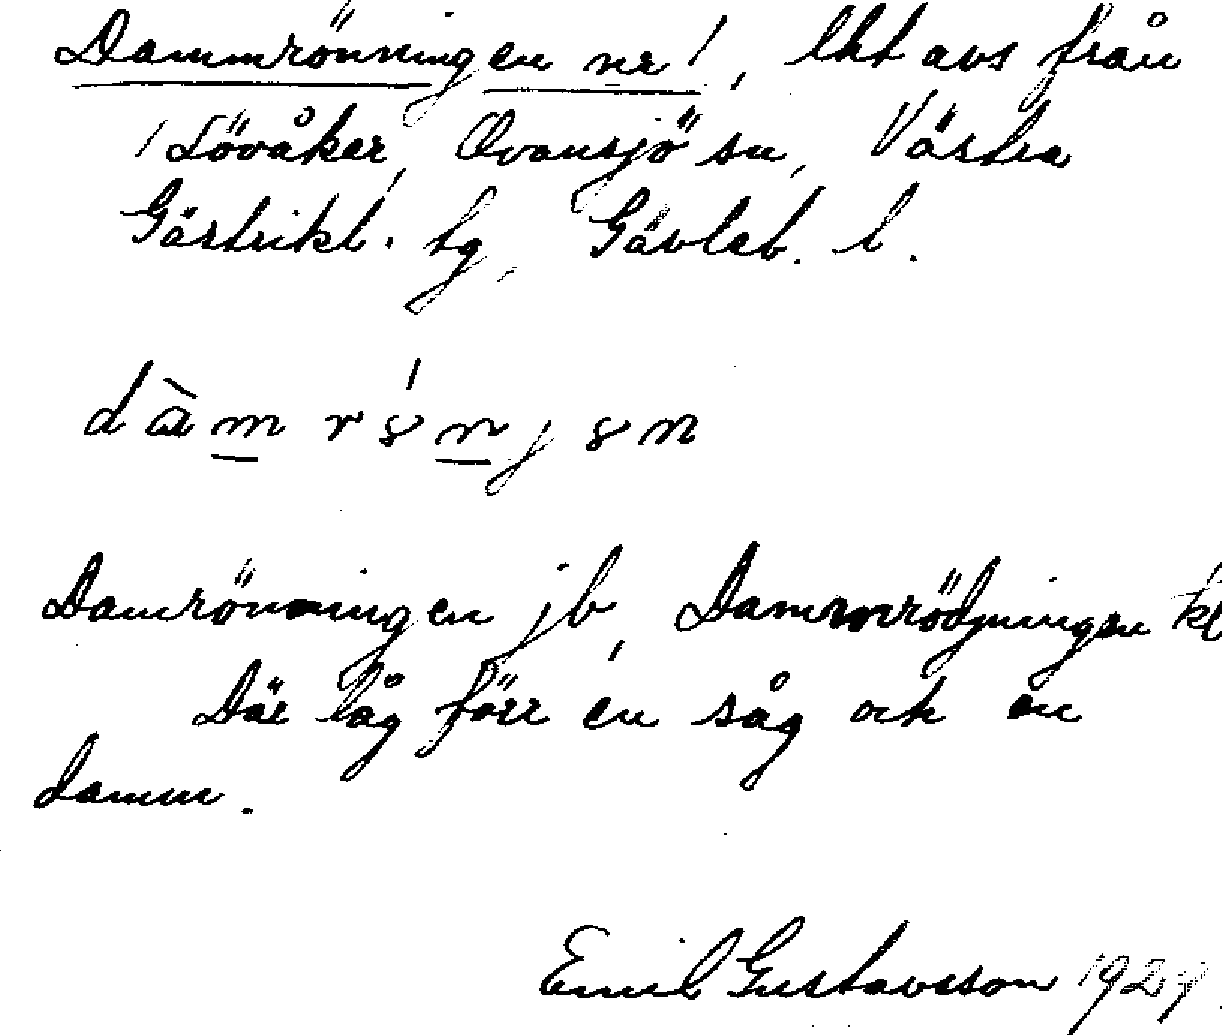 Dammrönningen nr 1, lht avs från
1 Lövåker, Ovansjö sn, Västra
Gästrikl. tg, Gävleb. l.
Damrönningen jb, Dammrödjningen kb
Där låg förr en såg och en
damm.
Emil Gustavsson 1927